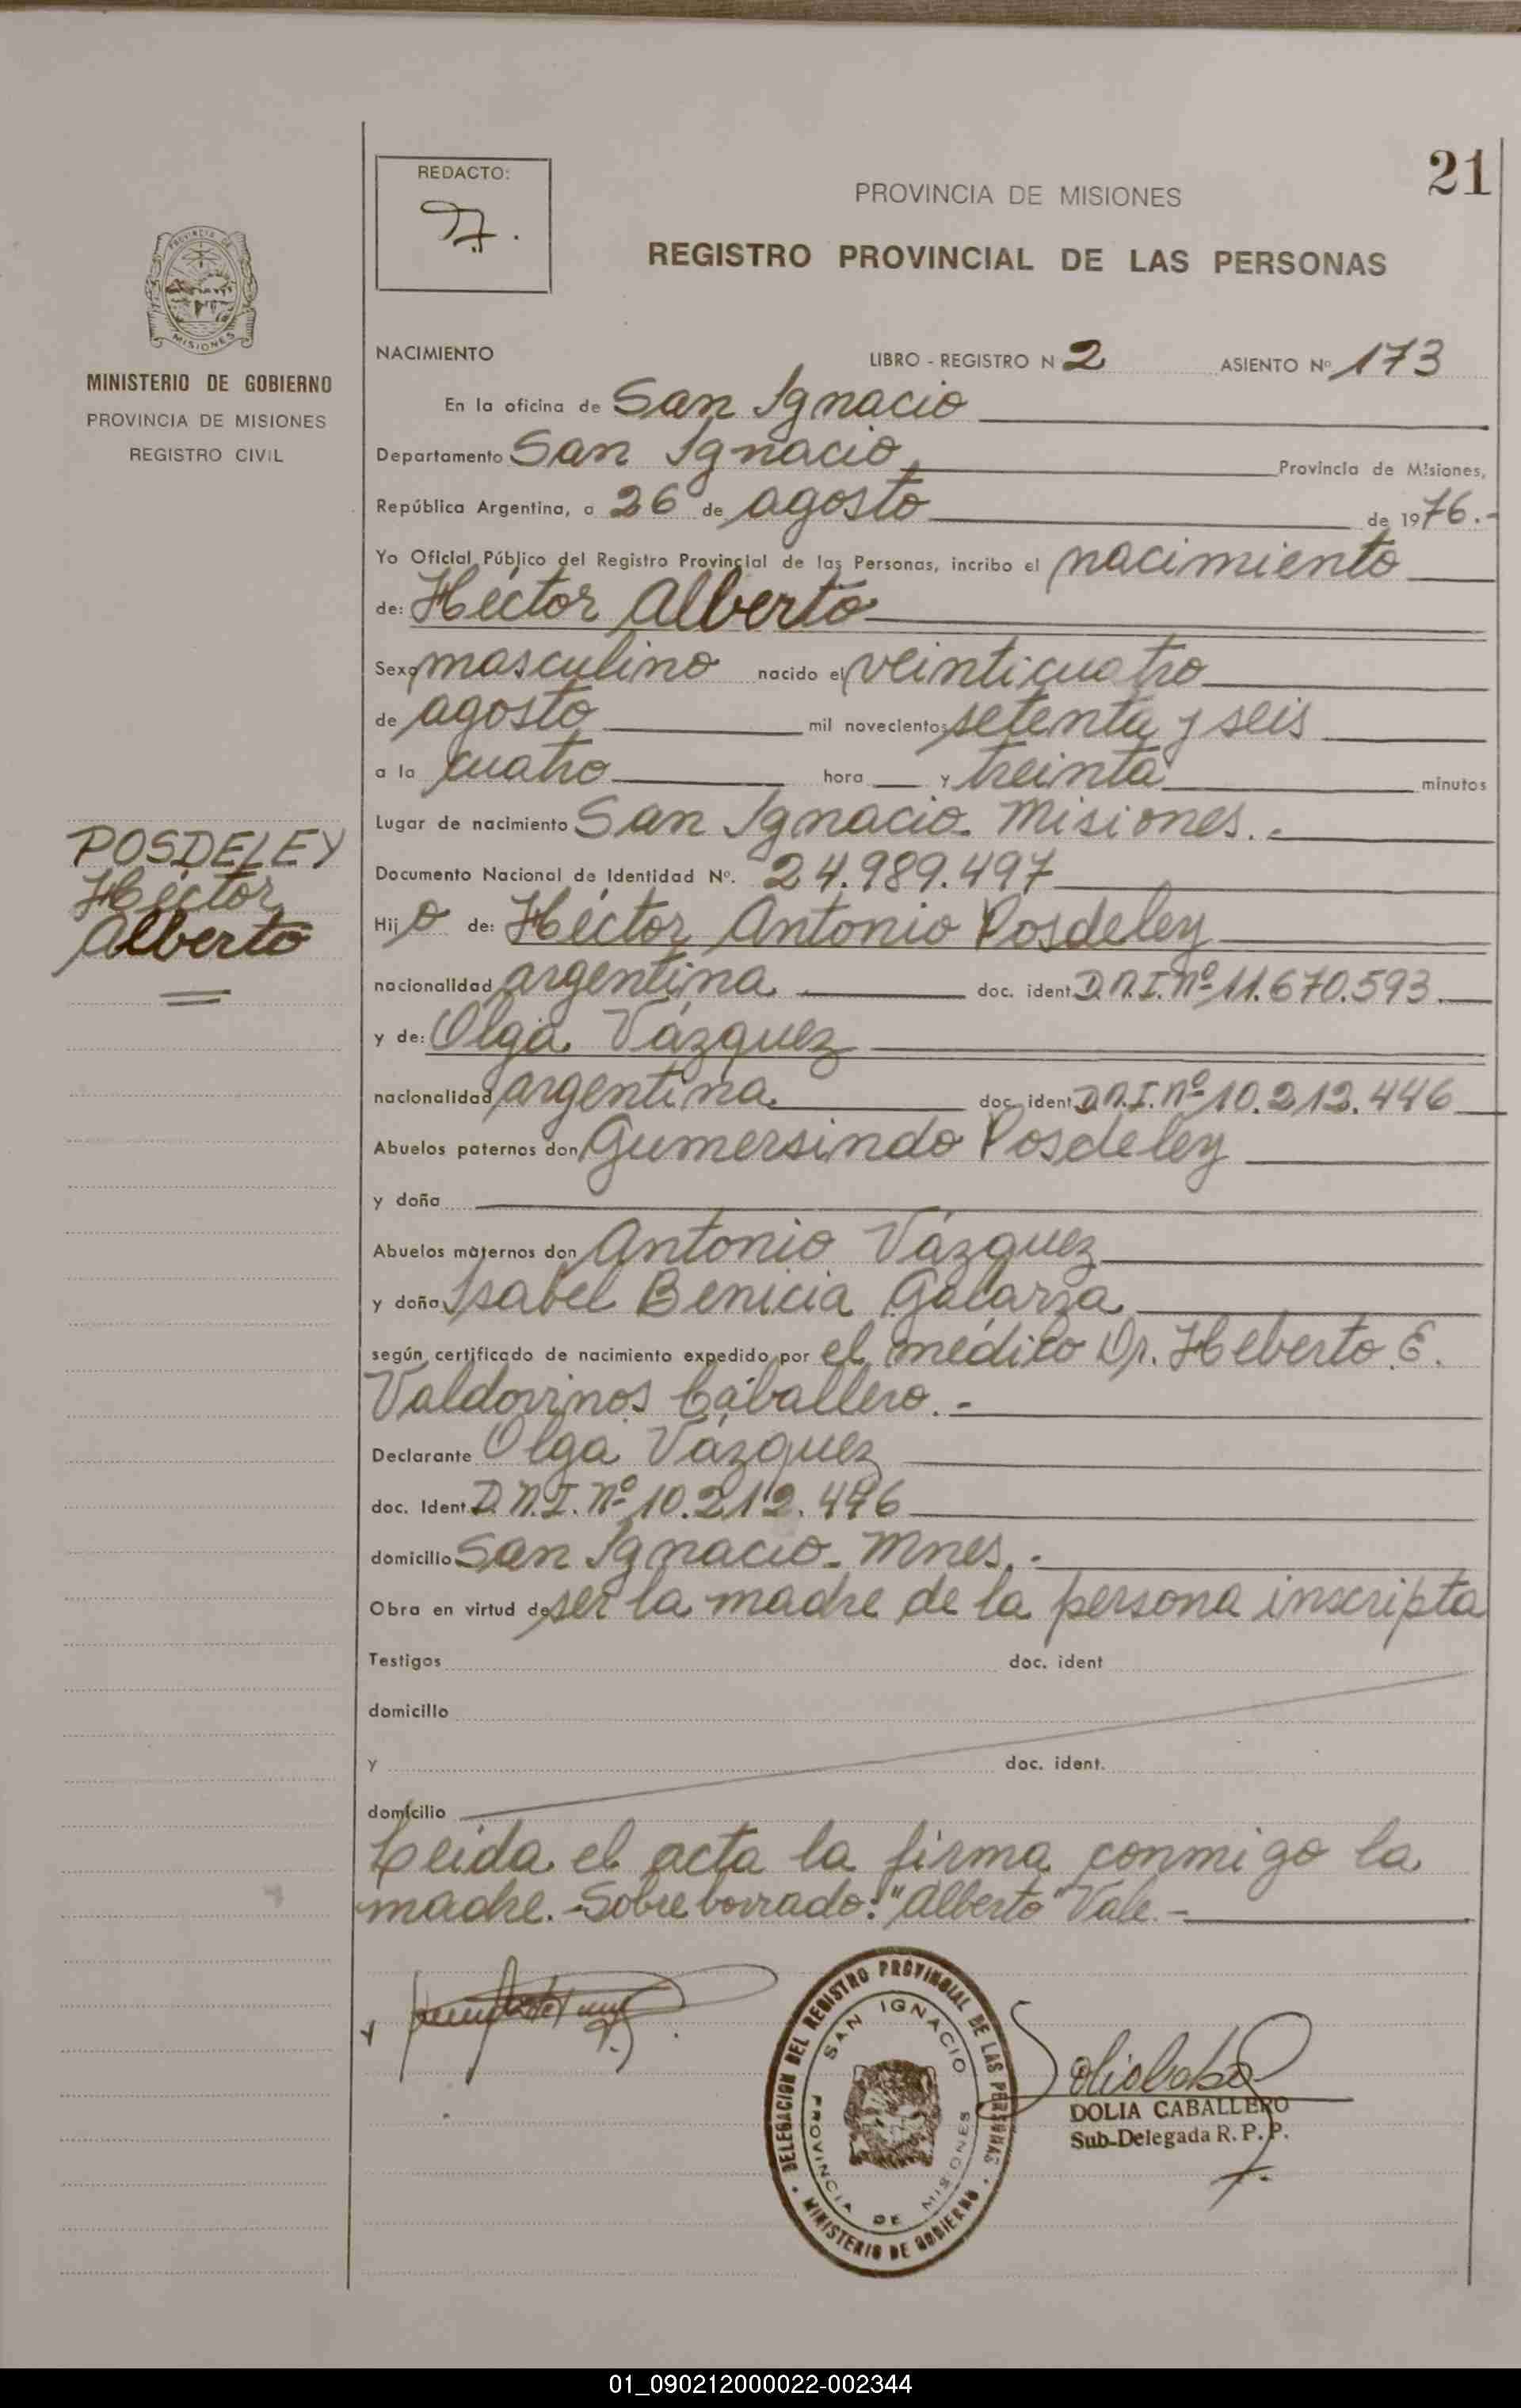 21
REDACTO:
PROVINCIA DE MISIONES
REGISTRO PROVINCIAL DE LAS PERSONAS
PROVINCIA DE
MISIONES
MINISTERIO DE GOBIERNO
PROVINCIA DE MISIONES
REGISTRO CIVIL
NACIMIENTO LIBRO - REGISTRO N 2 ASIENTO Nº 173
En la oficina de San Ignacio
Departamento San Ignacio Provincia de Misiones,
República Argentina, a 26 de agosto de 1976.-
Yo Oficial Público del Registro Provincial de las Personas, incribo el nacimiento
de: Héctor Alberto
Sexo masculino nacido el veinticuatro
de agosto mil novecientos setenta y seis
a la cuatro hora y treinta minutos
Lugar de nacimiento San Ignacio. Misiones.-
POSDELEY
Héctor
Alberto
Documento Nacional de Identidad Nº. 24.989.497
Hijo de: Héctor Antonio Posdeley
nacionalidad argentina doc. ident D.N.I. nº 11.670.593.
y de: Olga Vázquez
nacionalidad argentina doc. ident D.N.I. nº 10.212.446
Abuelos paternos don Gumersindo Posdeley
y doña
Abuelos maternos don Antonio Vázquez
y doña Isabel Benicia Galarza
según certificado de nacimiento expedido por el médico Dr. Heberto E.
Valdovinos Caballero.-
Declarante Olga Vázquez
doc. Ident. D.N.I. nº 10.212.446
domicilio San Ignacio - Mnes.-
Obra en virtud de ser la madre de la persona inscripta
Testigos doc. ident
domicilio
y doc. ident.
domicilio
Leida el acta la firma conmigo la
madre.- Sobre borrado: "Alberto" Vale.-
DELEGACION DEL REGISTRO PROVINCIAL DE LAS PERSONAS
SAN IGNACIO
PROVINCIA DE MISIONES
MINISTERIO DE GOBIERNO
DOLIA CABALLERO
Sub-Delegada R. P. P.
01_090212000022-002344